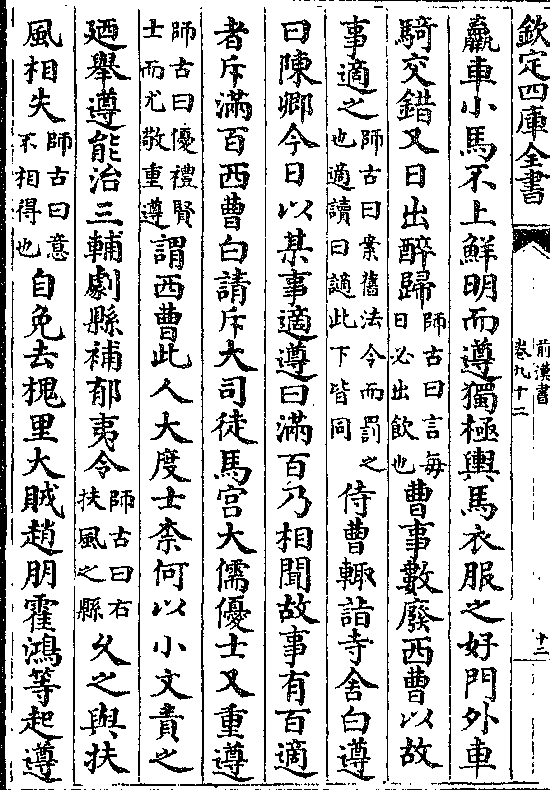 欽定四庫全書
前漢書
卷九十二
十二
羸車小馬不上鮮明而遵獨極輿馬衣服之好門外車
騎交錯又日出醉歸師古曰言每日必出飲也曹事數廢西曹以故
事適之師古曰案舊法令而罰之也適讀曰讁此下皆同侍曹輙詣寺舍白遵
曰陳卿今日以某事適遵曰滿百乃相聞故事有百適
者斥滿百西曹白請斥大司徒馬宮大儒優士又重遵
師古曰優禮賢士而尤敬重遵謂西曹此人大度士柰何以小文責之
廼舉遵能治三輔劇縣補郁夷令師古曰右扶風之縣久之與扶
風相失師古曰意不相得也自免去槐里大賊趙朋霍鴻等起遵